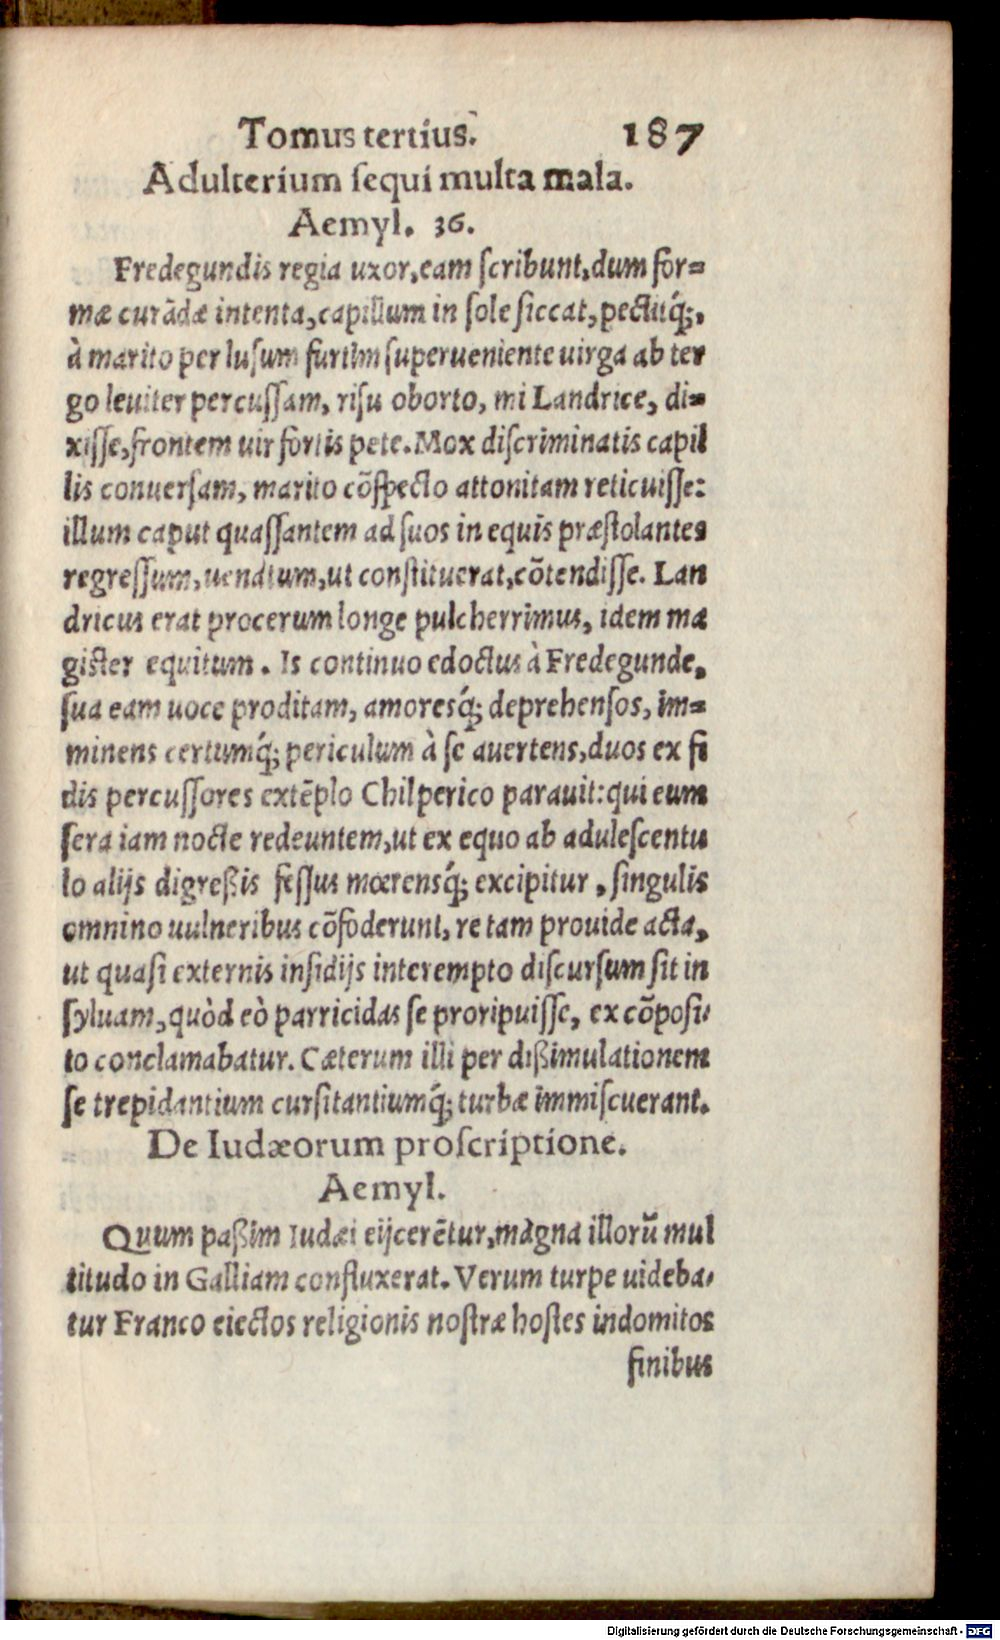 Tomus tertius. 187
Adulterium ſequi multa mala.
Aemyl. 36.
Fredegundis regia uxor, eam ſcribunt, dum for=
mæ curādæ intenta, capillum in ſole ſiccat, pectitq́;,
à marito per luſum furtim ſuperueniente uirga ab ter
go leuiter percuſſam, riſu oborto, mi Landrice, di=
xiſſe, frontem uir fortis pete. Mox diſcriminatis capil
lis conuerſam, marito cōſpecto attonitam reticuiſſe:
illum caput quaſſantem ad ſuos in equis præſtolantes
regreſſum, uenatum, ut conſtituerat, cōtendiſſe. Lan
dricus erat procerum longe pulcherrimus, idem ma
giſter equitum. Is continuo edoctus à Fredegunde,
ſua eam uoce proditam, amoresq́; deprehenſos, im=
minens certumq́; periculum à ſe auertens, duos ex fi
dis percuſſores extēplo Chilperico parauit: qui eum
ſera iam nocte redeuntem, ut ex equo ab aduleſcentu
lo alijs digreßis feſſus mœrensq́; excipitur, ſingulis
omnino uulneribus cōfoderunt, re tam prouide acta,
ut quaſi externis inſidijs interempto diſcurſum ſit in
ſyluam, quòd eò parricidas ſe proripuiſſe, ex cōpoſi-
to conclamabatur. Cæterum illi per dißimulationem
ſe trepidantium curſitantiumq́; turbæ immiſcuerant.
De Iudæorum proſcriptione.
Aemyl.
Quum paßim Iudæi eijcerētur, magna illorū mul
titudo in Galliam confluxerat. Verum turpe uideba-
tur Franco eiectos religionis noſtræ hoſtes indomitos
finibus
Digitalisierung gefördert durch die Deutsche Forschungsgemeinschaft - DFG